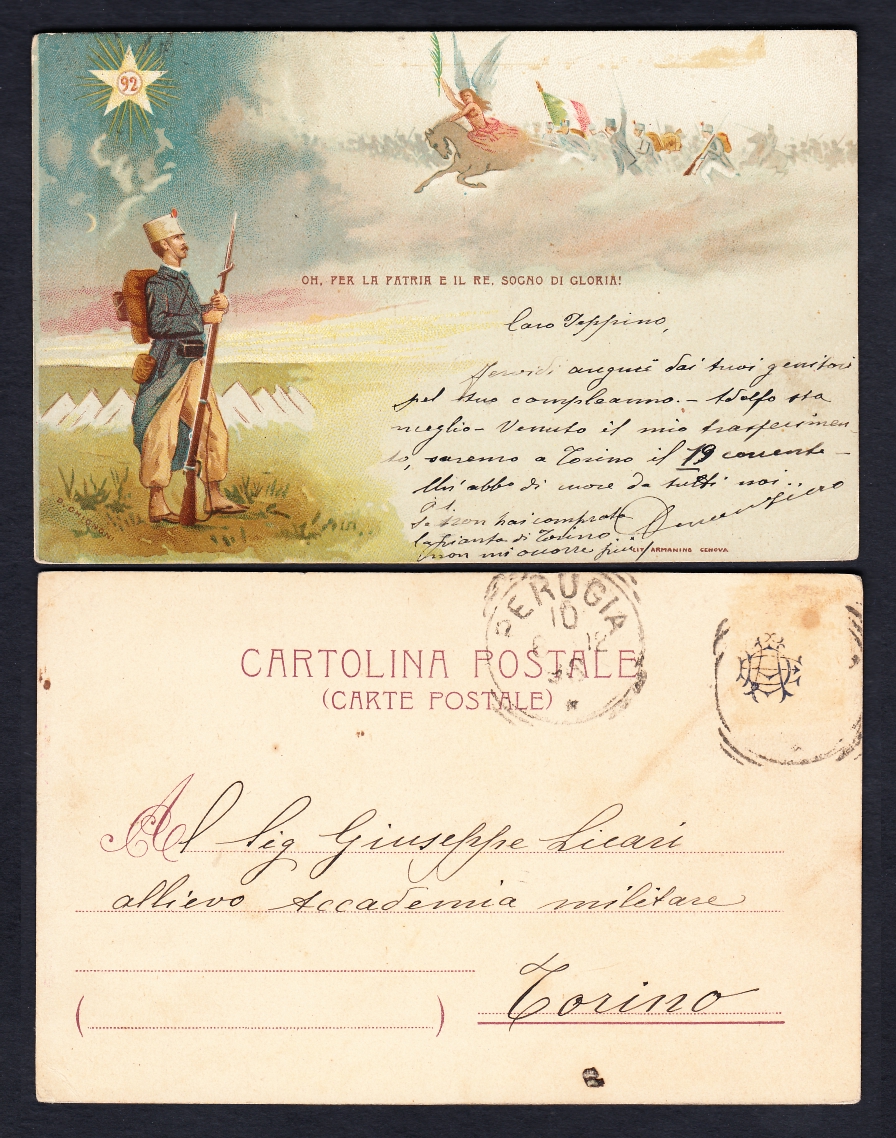 92
OH, PER LA PATRIA E IL RE, SOGNO DI GLORIA!
Caro Peppino,
Fervidi augurii dai tuoi genitori
pel tuo compleanno. - Adolfo sta
meglio - Venuto il mio trasferimen-
to, saremo a Torino il 19 corrente -
Un'abbo di cuore da tutti noi..
Se non hai comprato
la pianta di Torino..
non mi occorre più
LIT. ARMANINO GENOVA
CARTOLINA POSTALE
(CARTE POSTALE)
PERUGIA
10
Al Sig Giuseppe Licari
allievo Accademia militare
Torino
( )